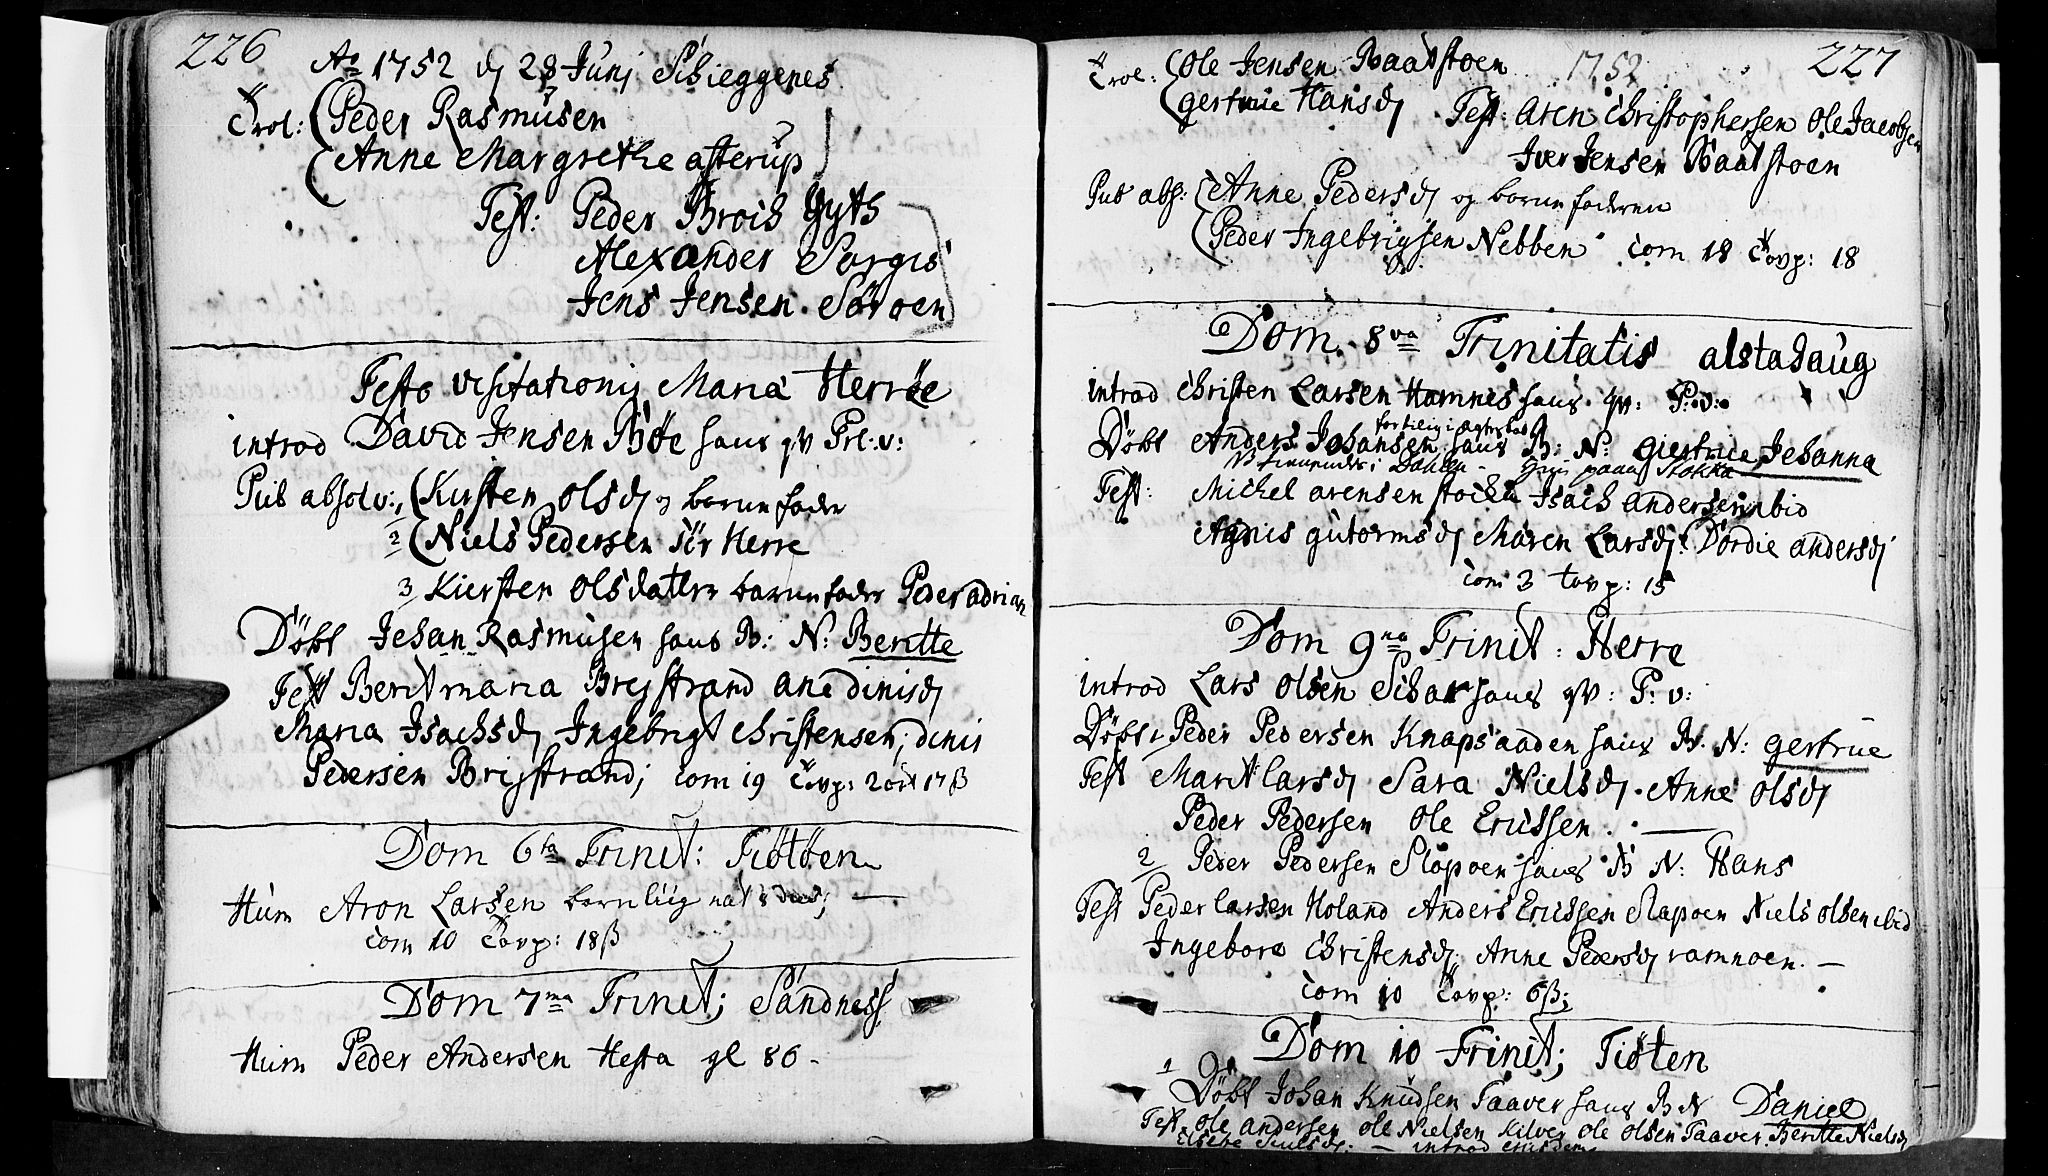 226
Ao 1752 dj 28 Junj Schieggenes
Trol: Peder Rasmusen
Anne Margrethe asterup
Test: Peder Broch Gyth
Alexander
Jens Jensen Söroen
Festo Visitationis Maria Herröe
introd David Jensen Böe hans qv Prl: v:
Pub absolv: 1 Kirsten olsdj barnefader
2 Niels Pedersen Sör Herre
3 Kiersten olsdatter barnefader Peder adrian
Döbt Johan Rasmusen hans B: N: Beritte
Test Berit maria Breistrand ane dinisdj
Maria Isachsdj Ingebrigt Christensen, dinis
Pedersen Brejstrand; Com 19
Dom 6ta Trinit: Tiötöen
Hum Aron Larsen barn
Com 10 18 ß
Dom 7ma Trinit; Sandness
Hum Peder Andersen Hesta gl 86 -
1752 227
Trol: Ole Jensen Baadstoen
gertrue Hansdj Test: Aren Christophersen Ole Jacobsen
Iver Jensen Baadstoen
Pub abs: Anne Pedersdj og barnefaderen
Peder Ingebrigtsen Nebben Com 18 18
Dom. 8va Trinitatis alstahaug
introd Christen Larsen Hamnes hans qv: P: v:
Döbt Anders Johansen hans B: N: giertrue Johanna
Test: Michel arensen stocka Isach andersen ibid
Agnis gutormsdj Maren Larsdj: Dordie andersdj
Com 3 15
Dom 9na Trinit: Herre
introd Lars Olsen hans qv: P: v:
Döbt 1 Peder Pedersen Knapsaaden hans B. N: gertrue
Test Marit larsdj Sara Nielsdj. Anne olsdj
Peder Pedersen Ole Ericssen.
2 Peder Pedersen Slapoen hans B N: Hans
Test Peder larsen Holand Anders Ericssen Slapoen Niels olsen ibid
Ingebore Christensdj Anne Pedersdj ramnoen. —
Com 10 6 ß;
Dom 10 Trinit; Tiöten
1 Döbt Johan Knudsen Taaver hans B N Daniel
Test ole andersen ole Nielsen Kilven ole olsen Taaver Beritte Nielsdj